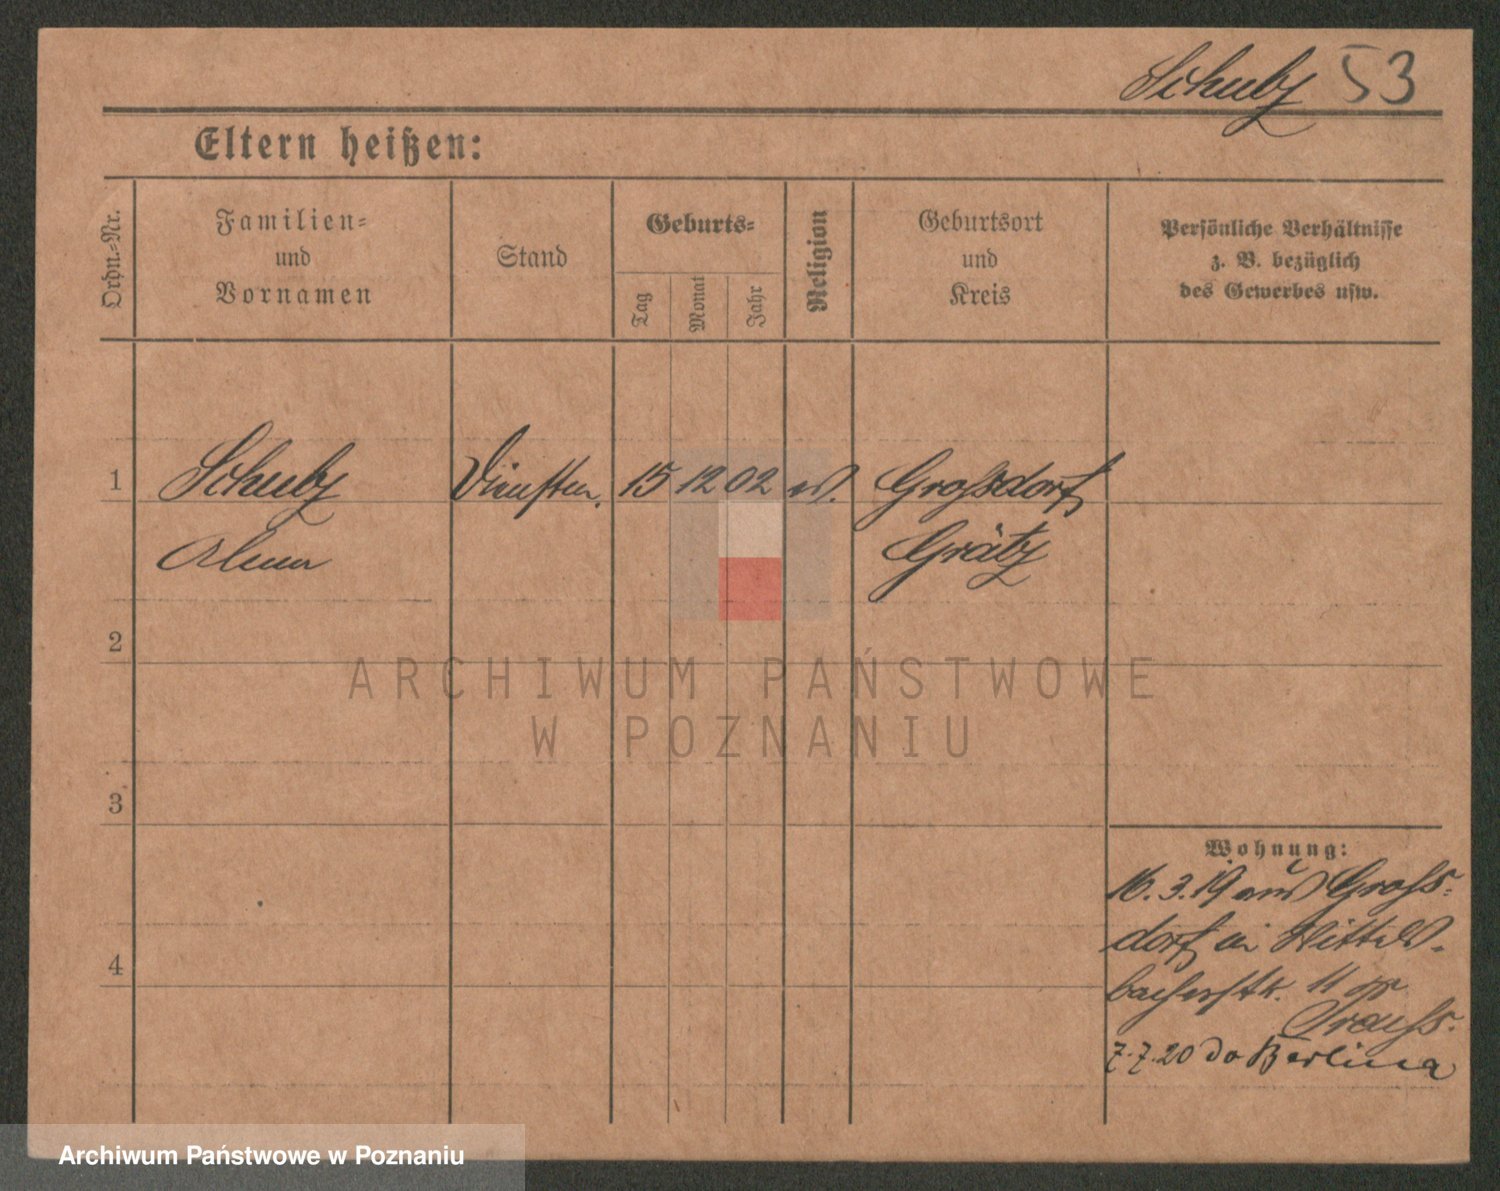 Schulz 53
Eltern heißen:
Ordn.=Nr.
Familien=
und
Vornamen
Stand
Geburts=
Tag
Monat
Jahr
Religion
Geburtsort
und
Kreis
Persönliche Verhältnisse
z. B. bezüglich
des Gewerbes usw.
1
Schulz
15 12 02 ev.
Großdorf
Grätz
2
ARCHIWUM PAŃSTWOWE
W POZNANIU
3
Wohnung:
16.3.19 aus Großs=
dorf in Wittels=
bacherstr. 11
4
7.7.20 do Berlina
Archiwum Państwowe w Poznaniu